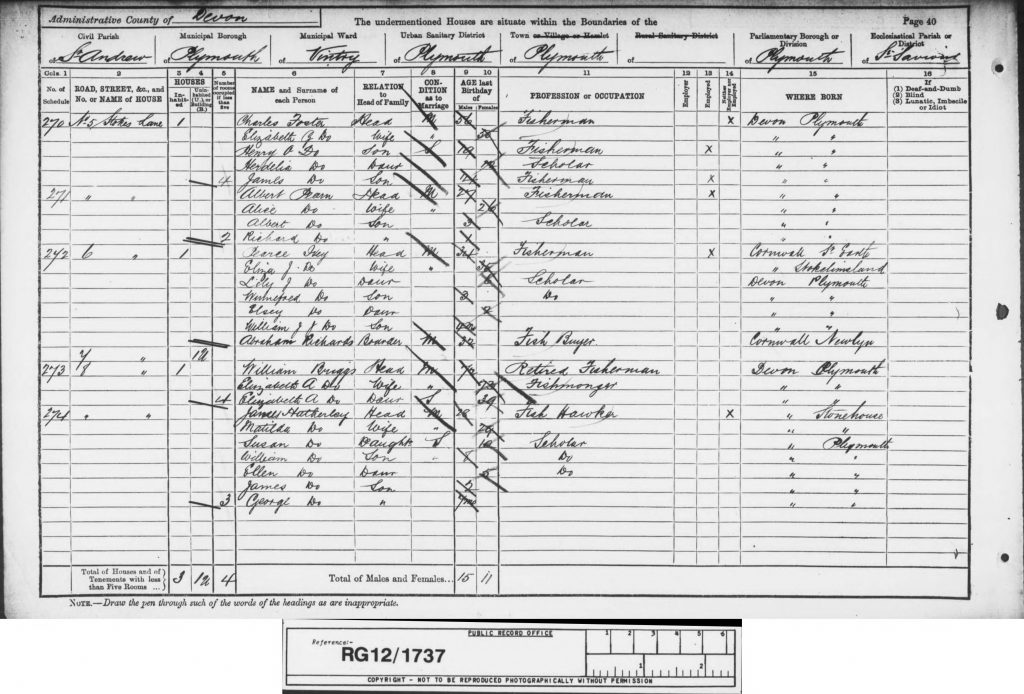 Administrative County of Devon The undermentioned Houses are situate within the Boundaries of the Page 40
Civil Parish Municipal Borough Municipal Ward Urban Sanitary District Town or Village or Hamlet Rural Sanitary District Parliamentary Borough or Division Ecclesiastical Parish or District
of St Andrew of Plymouth of Vintry of Plymouth of Plymouth of of Plymouth of St Saviour
Cols. 1 2 3 4 5 6 7 8 9 10 11 12 13 14 15 16
No. of Schedule ROAD, STREET, &c., and No. or NAME of HOUSE HOUSES Inhabited Uninhabited (U.), or Building (B.) Number of rooms occupied if less than five NAME and Surname of each Person RELATION to Head of Family CONDITION as to Marriage AGE last Birthday of Males Females PROFESSION or OCCUPATION Employer Employed Neither Employer nor Employed WHERE BORN If (1) Deaf-and-Dumb (2) Blind (3) Lunatic, Imbecile or Idiot
270 No 5 Stokes Lane 1 Charles Foster Head M 56 Fisherman X Devon Plymouth
Elizabeth Do Wife " " "
Henry Do Son S 19 Fisherman X " "
Do Daur Scholar " "
4 James Do Son 14 Fisherman X " "
271 " " Albert Head M 27 Fisherman X " "
Alice Do Wife " 26 " "
Albert Do Son 3 Scholar " "
2 Richard Do " 1 " "
242 6 " 1 Pearce Head M 34 Fisherman X Cornwall St
Eliza J Do Wife " "
Lily J Do Daur Scholar Devon Plymouth
Winnefred Do Son 3 Do " "
Elsey Do Daur 2 " "
William J Do Son " "
Abraham Richards Boarder M 32 Fish Buyer Cornwall Newlyn
7 " 1U
273 8 " 1 William Briggs Head M Retired Fisherman Devon Plymouth
Elizabeth A Do Wife " 73 Fishmonger " "
4 Elizabeth A Do Daur S 39 " "
274 " " James Hatherley Head M 28 Fish Hawker X " Stonehouse
Matilda Do Wife " 29 " "
Susan Do Daught S 10 Scholar " Plymouth
William Do Son " 8 Do " "
Ellen Do Daur 5 Do " "
James Do Son " "
3 George Do " " "
Total of Houses and of Tenements with less than Five Rooms ... 3 1U 4 Total of Males and Females... 15 11
NOTE.—Draw the pen through such of the words of the headings as are inappropriate.
PUBLIC RECORD OFFICE 1 2 3 4 5 6
Reference:-
RG12/1737 1 2
COPYRIGHT - NOT TO BE REPRODUCED PHOTOGRAPHICALLY WITHOUT PERMISSION